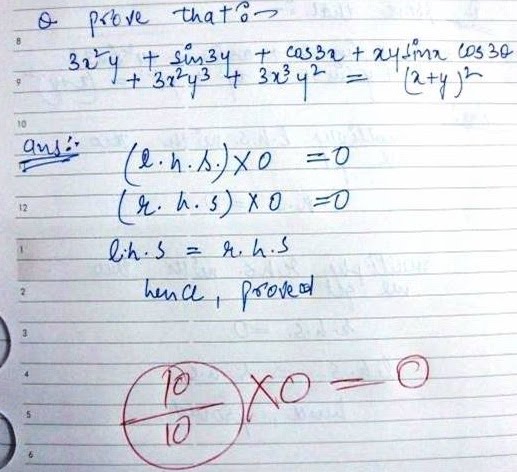 Q prove that :-
8
3x²y + sin3y + cos3x + xysinx cos3θ
9
+ 3x²y³ + 3x³y² = (x+y)²
10
ans :-
(l.h.s.) x 0 = 0
12
(r.h.s) x 0 = 0
1
l.h.s = r.h.s
2
hence, proved
3
4
10/10 x 0 = 0
5
6